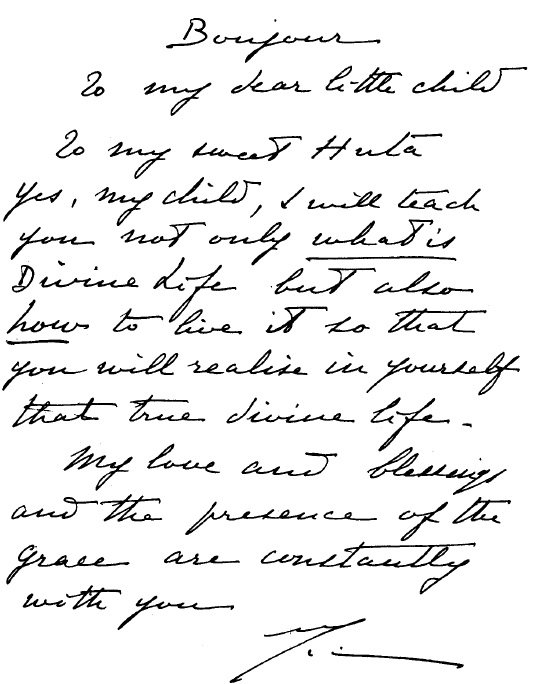 Bonjour
To my dear little child
To my sweet Huta
Yes, my child, I will teach
you not only what is
Divine Life but also
how to live it so that
you will realise in yourself
that true divine life.
My love and blessings
and the presence of the
Grace are constantly
with you